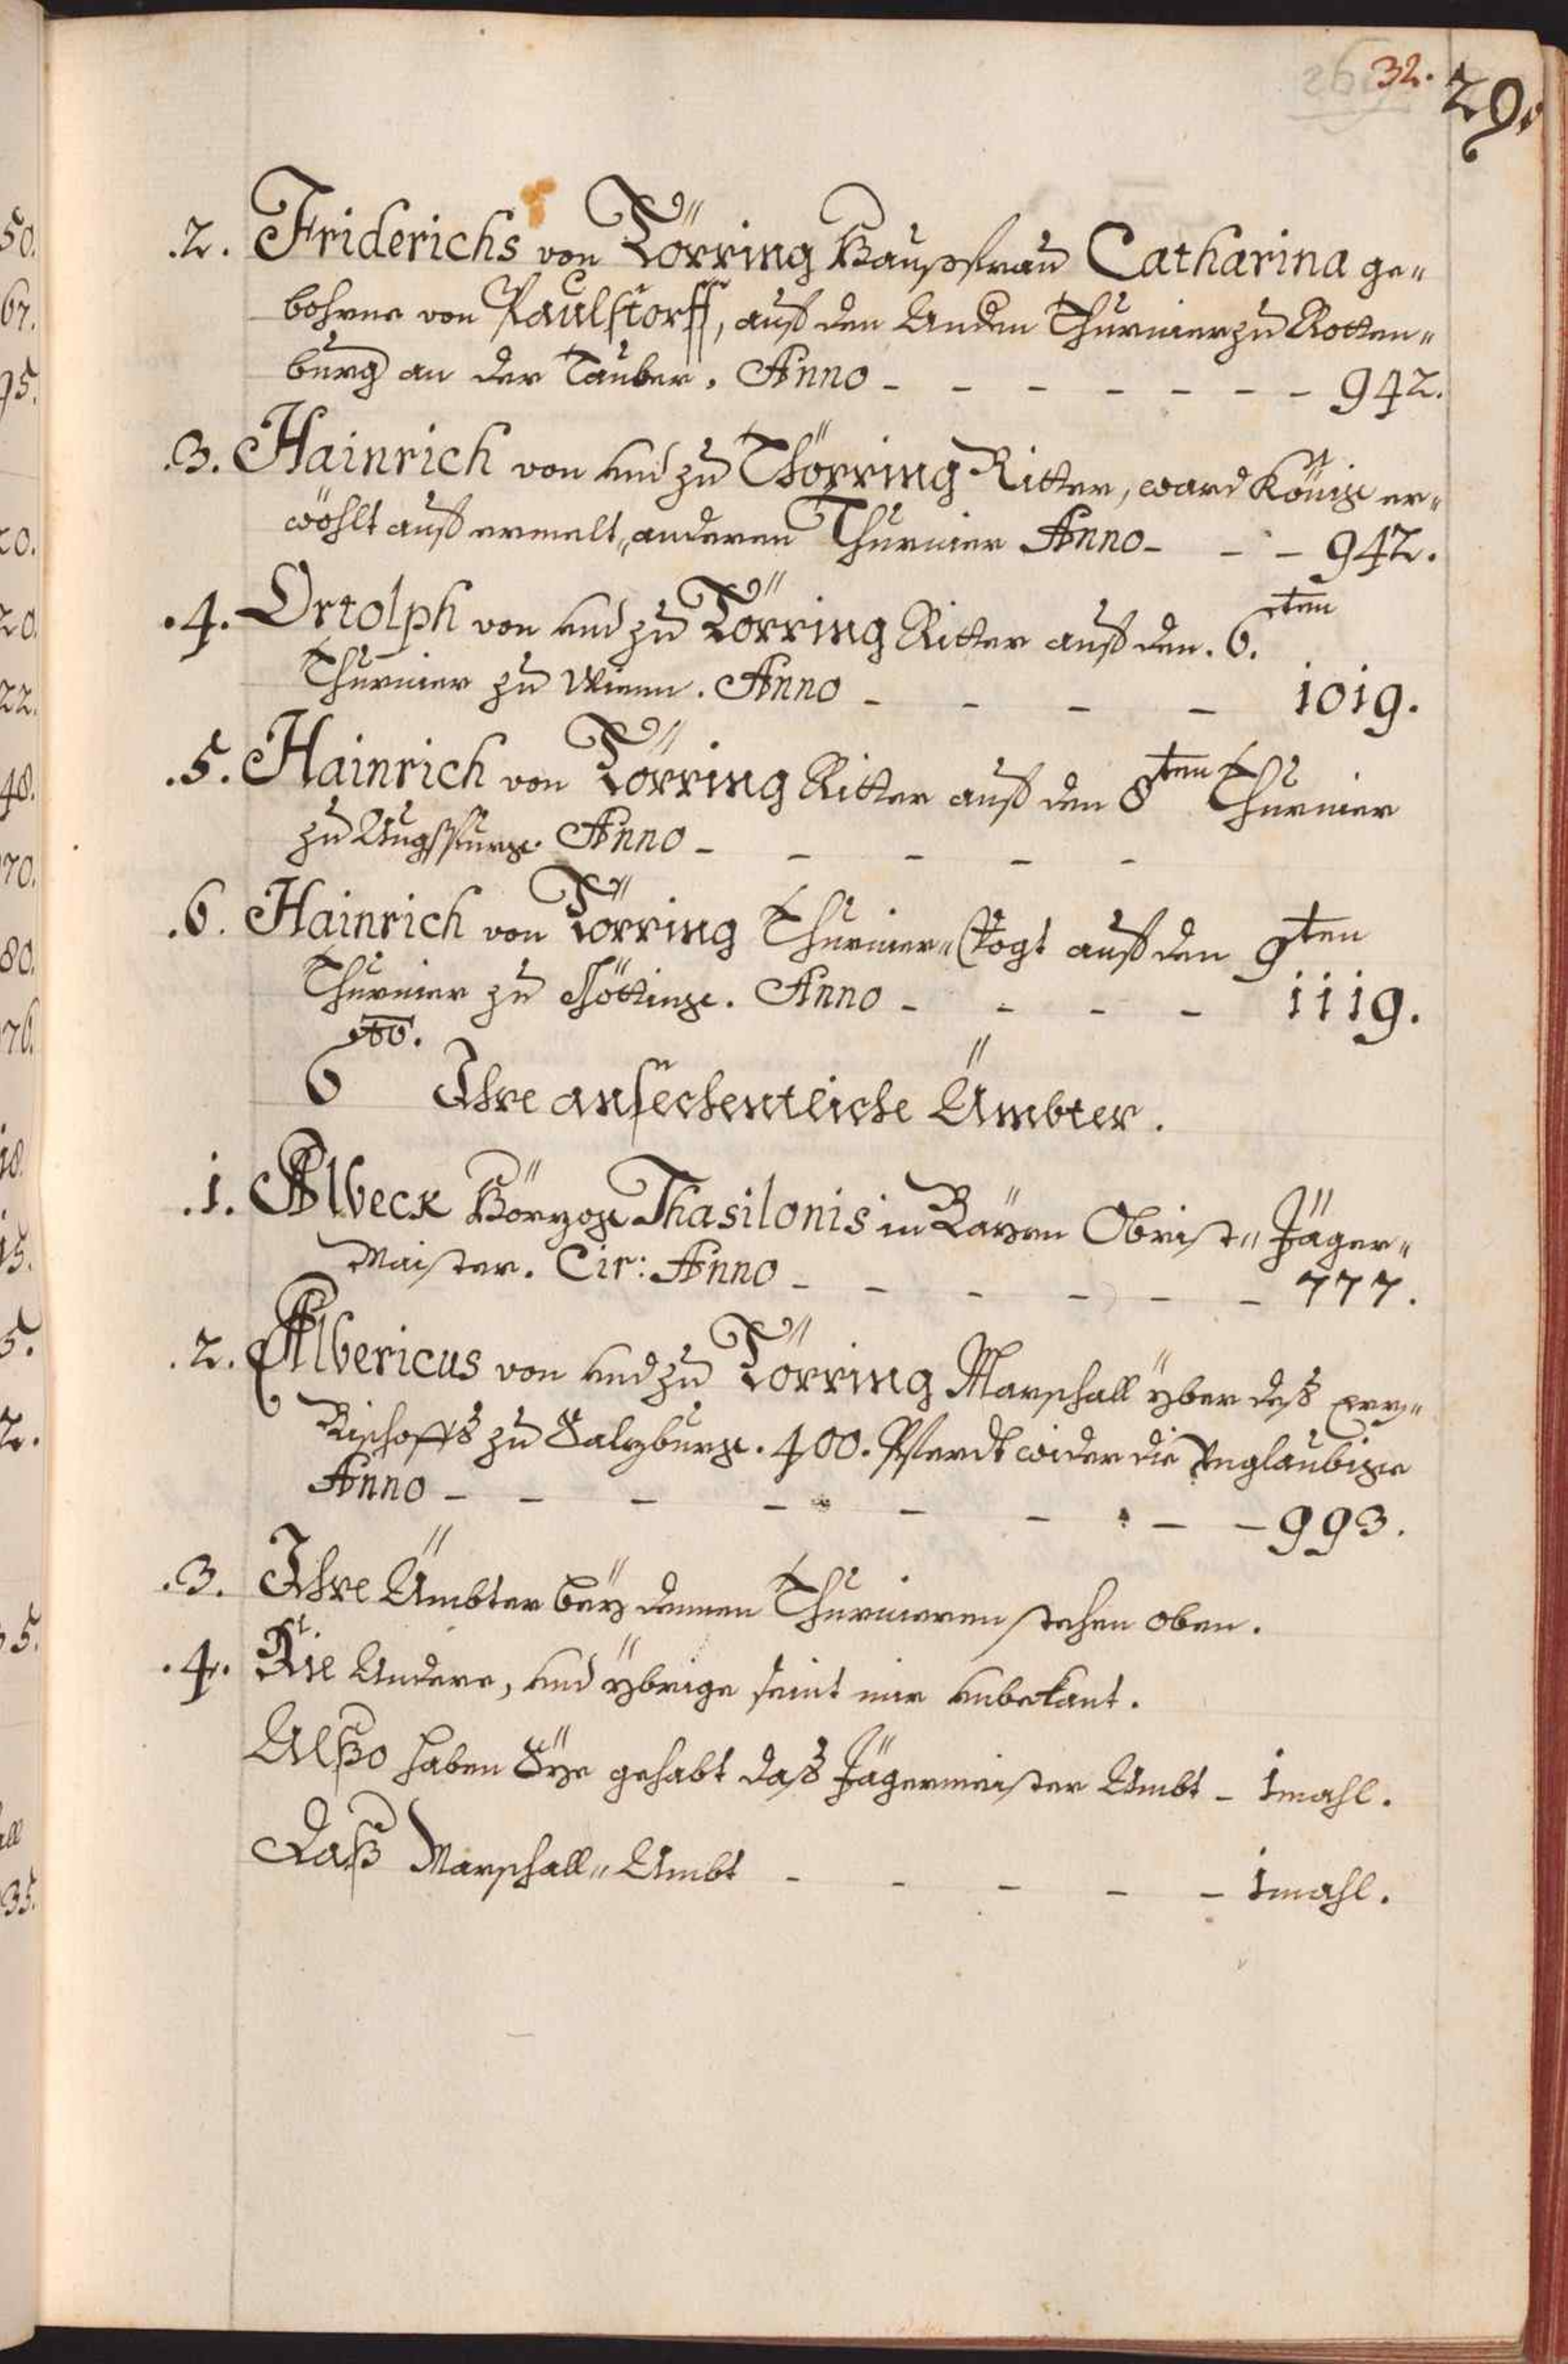 32. 29.
.2. Friderichs von Törring Haußfrau Catharina ge„
bohrne von Paulstorff, auf den Anden Thurnier zu Rotten„
burg an der Tauber. Anno - - - - - - - 942.
.3. Hainrich von und zu Thörring Ritter, ward König er„
wöhlt auf ermelt„ anderen Thurnier Anno - - - 942.
.4. Ortolph von und zu Törring Ritter auf den .6.ten
Thurnier zu Wienn. Anno - - - - 1019.
.5. Hainrich von Törring Ritter auf den 8ten Thurnier
zu Augspurg. Anno - - - - -
.6. Hainrich von Törring Thurnier„ Vogt auf den 9ten
Thurnier zu Göttinge. Anno - - - - 1119.
6to. Ihre ansechentliche Ämbter.
.1. Albeck Hörzog Thasilonis in Bayrn Obrist„ Jäger„
Maister. Cir: Anno - - - - - - 777.
.2. Albericus von und zu Törring Marschall yber deß Erz„
Bischoffs zu Salzburg. 400. Pferdt wider die Unglaubige
Anno - - - - - - - - 993.
.3. Ihre Ämbter bey denen Thurnieren stehen oben.
.4. Die Andere, und ybrige seint mir unbekant.
Alßo haben Sye gehabt daß Jägermeister Ambt - 1mahl.
Daß Marschall„ Ambt - - - - - 1mahl.